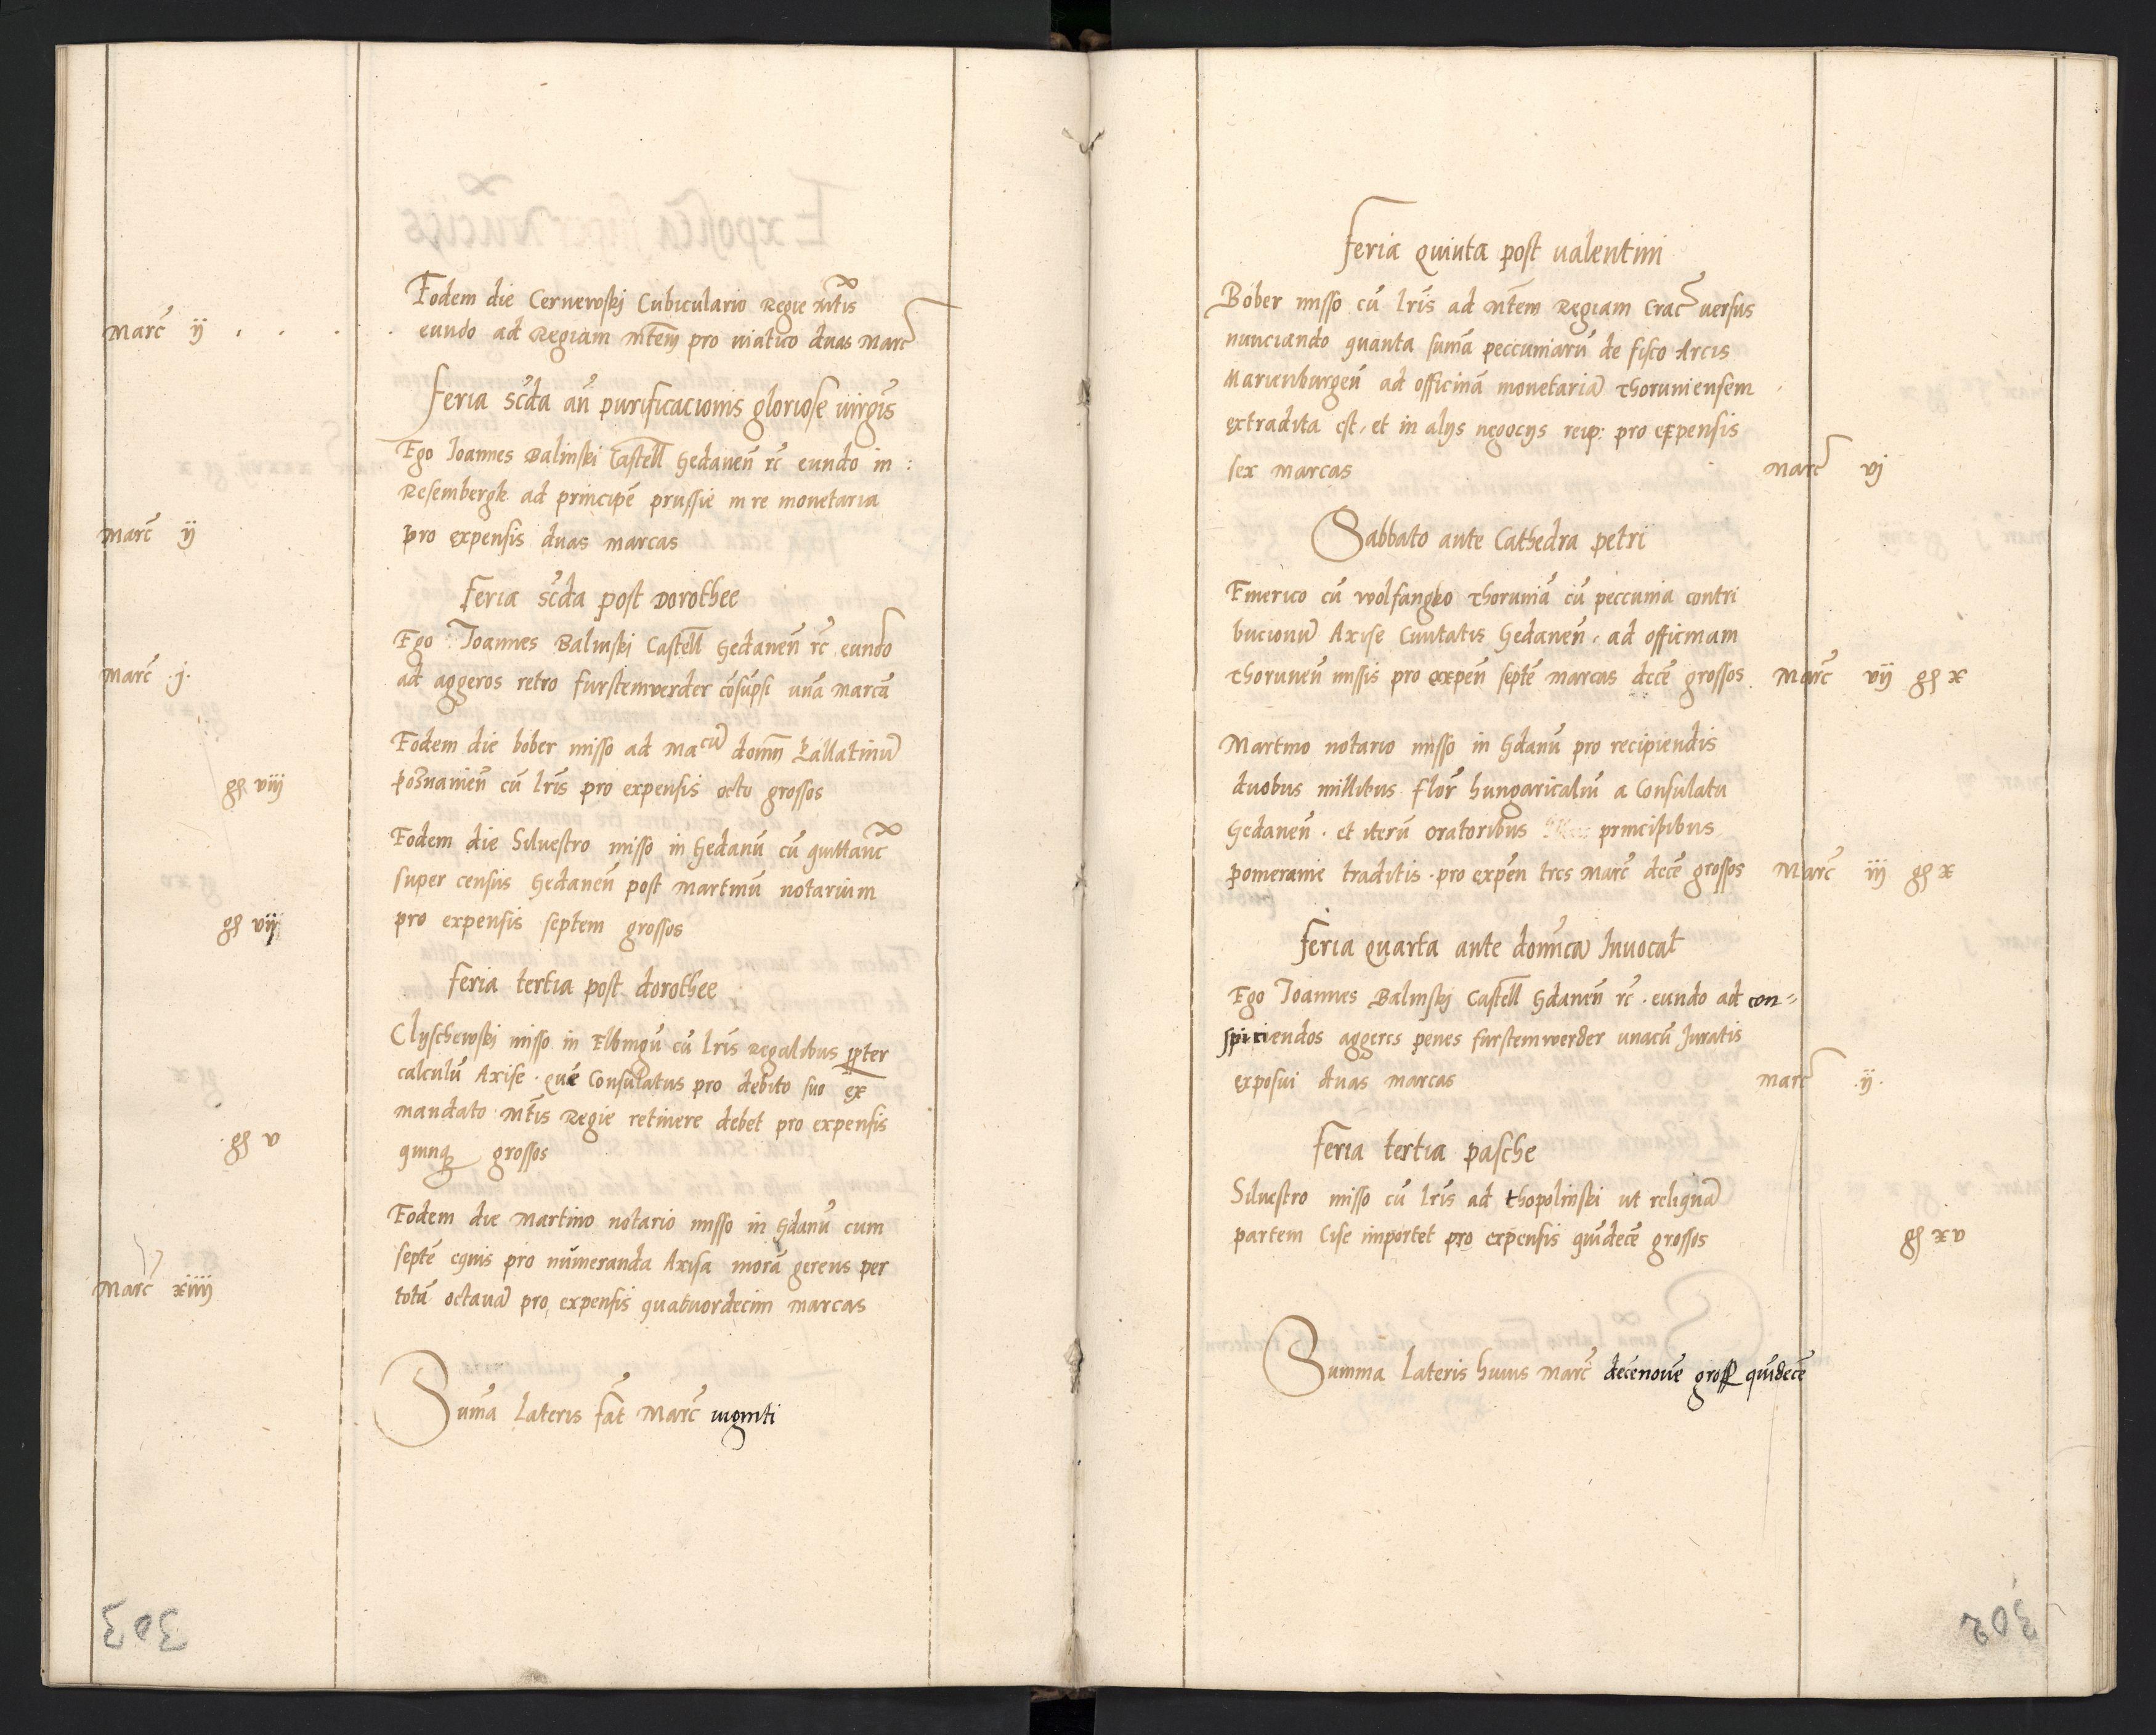 Eodem die Cernewskj Cubiculario Regie Mtis
Marc ij . . . . eundo ad Regiam Mtem pro viatico duas Marc
Feria scda an purificacionis gloriose virgis
Ego Joannes Balinski Castell Gedanen rc eundo in :
Resembergk ad principe prussie in re monetaria
Marc ij pro expensis duas marcas
Feria scda post Dorothee
Ego Joannes Balinski Castell Gedanen rc eundo
Marc .j. ad aggeros retro furstemwerder cosupsi una marca
Eodem die bober misso ad Macu domn Pallatinu
gr viij Poznanien cu lris pro expensis octo grossos
Eodem die Siluestro misso in Gedanu cu quittanc
super censis Gedanen post Martinu notarium
gr vij pro expensis septem grossos
feria tertia post dorothee
Clyschewskj misso in Elbingu cu lris Regalibus ppter
calculu Axise . que Consulatus pro debito suo ex
mandato Mtis Regie retinere debet pro expensis
gr v quinq grossos
Eodem die Martino notario misso in Gdanu cum
septe equis pro numeranda Axisa mora gerens per
Marc xiiij tota octaua pro expensis quatuordecim marcas
Suma Lateris fat Marc viginti
303
Feria quinta post valentini
Bober misso cu lris ad Mtem Regiam Crac versus
nunciando quanta suma peccuniaru de fisco Arcis
Marienburgen ad officina monetaria Thoruniensem
extradita est, et in alijs ngoocijs reip: pro expensis
sex marcas Marc vj
Sabbato ante Cathedra petri
Emerico cu wolfangko Thorunia cu peccunia contri
bucionu Axise Ciuitatis Gedanen . ad officinam
Thorunen missis pro expen septe marcas dece grossos Marc vij gr x
Martino notario misso in Gdanu pro recipiendis
duobus millibus flor hungaricaliu a Consulatu
Gedanen . et iteru oratoribus principibus
pomeranie traditis . pro expen tres Marc dece grossos Marc iij gr x
Feria quarta ante domica Inuocat
Ego Joannes Balinskj Castell Gdanen rc . eundo ad con=
spiciendos aggeres penes furstemwerder unacu Juratis
exposui duas marcas Marc .ij.
Feria tertia pasche
Siluestro misso cu lris ad Thopolinski ut reliqua
partem Cise importet pro expensis quidece grossos gr xv
Summa Lateris huius Marc decenoue gross quidece
302